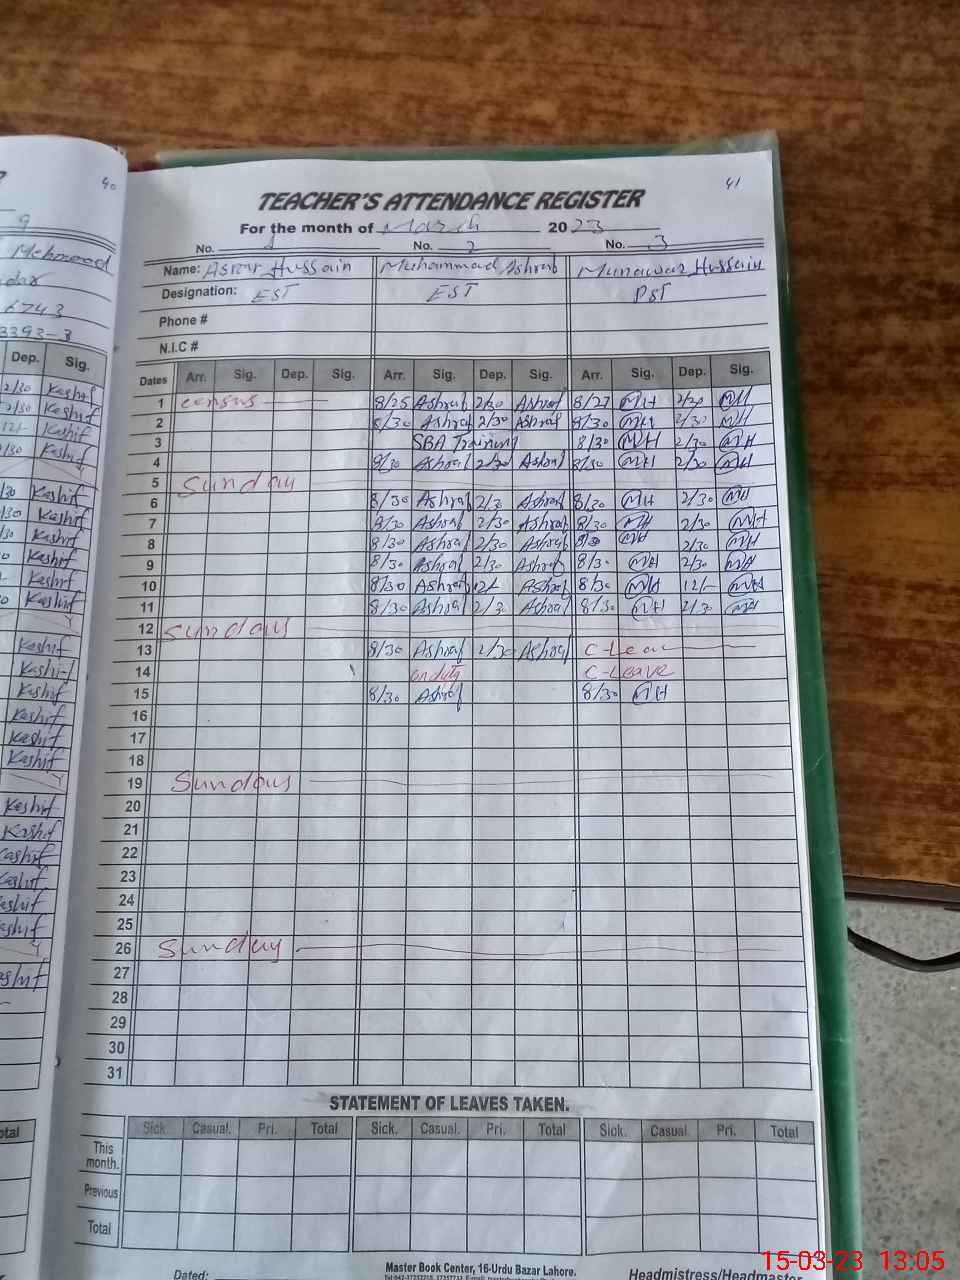 40
9
Mehmood
6743
3393-3
Dep. Sig.
2/30 Kashif
2/30 Kashif
12/- Kashif
2/30 Kashif
/30 Kashif
/30 Kashif
/30 Kashif
Kashif
Kashif
Kashif
Kashif
Kashif
Kashif
Kashif
Kashif
Kashif
Kashif
Kashif
Kashif
Kashif
Kashif
Kashif
Kashif
41
TEACHER'S ATTENDANCE REGISTER
For the month of March 2023
No. 1 No. 2 No. 3
Name: Asrar Hussain Muhammad Ashraf Munawar Hussain
Designation: EST EST PST
Phone #
N.I.C #
Dates Arr. Sig. Dep. Sig. Arr. Sig. Dep. Sig. Arr. Sig. Dep. Sig.
1 census 8/25 Ashraf 2/30 Ashraf 8/27 MH 2/30 MH
2 8/30 Ashraf 2/30 Ashraf 8/30 MH 2/30 MH
3 SBA Training 8/30 MH 2/30 MH
4 8/30 Ashraf 2/30 Ashraf 8/30 MH 2/30 MH
5 Sunday
6 8/30 Ashraf 2/30 Ashraf 8/30 MH 2/30 MH
7 8/30 Ashraf 2/30 Ashraf 8/30 MH 2/30 MH
8 8/30 Ashraf 2/30 Ashraf 8/30 MH 2/30 MH
9 8/30 Ashraf 2/30 Ashraf 8/30 MH 2/30 MH
10 8/30 Ashraf 12/- Ashraf 8/30 MH 12/- MH
11 8/30 Ashraf 2/30 Ashraf 8/30 MH 2/30 MH
12 Sunday
13 8/30 Ashraf 2/30 Ashraf C-Leav
14 on duty C-Leave
15 8/30 Ashraf 8/30 MH
16
17
18
19 Sunday
20
21
22
23
24
25
26 Sunday
27
28
29
30
31
STATEMENT OF LEAVES TAKEN.
Sick. Casual. Pri. Total Sick. Casual. Pri. Total Sick. Casual. Pri. Total
This month.
Previous
Total
otal
Master Book Center, 16-Urdu Bazar Lahore.
Dated: Headmistress/Headmaster
15-03-23 13:05